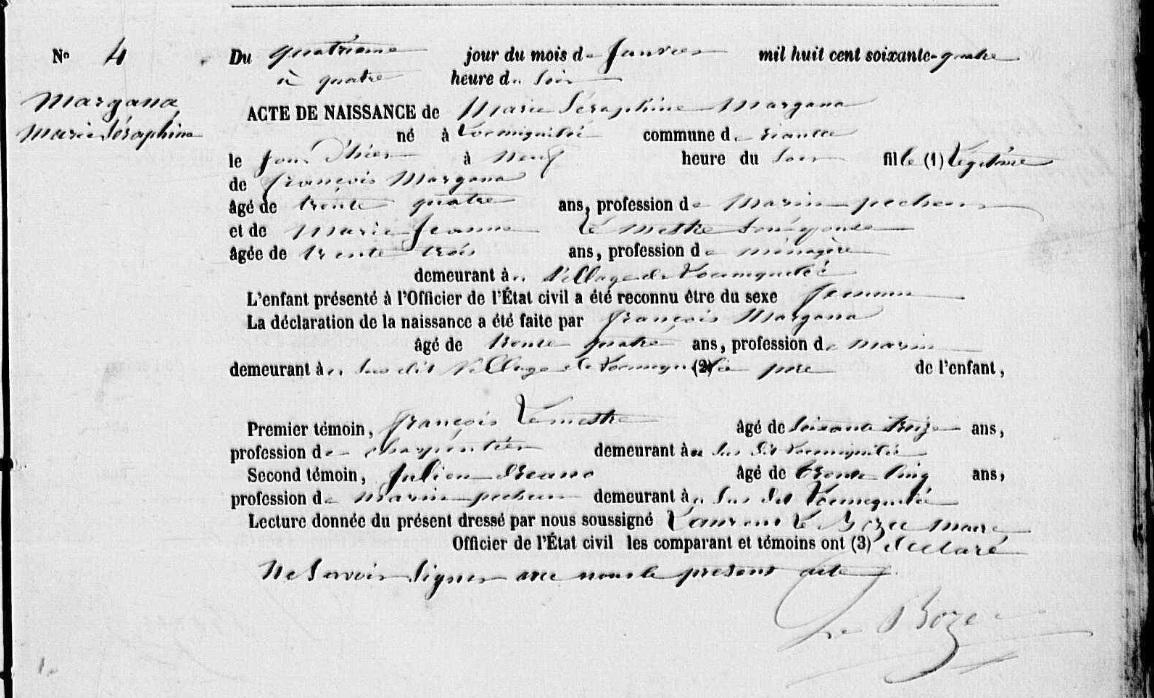 No 4
Margana
Marie Séraphine
Du quatrième jour du mois de Janvier mil huit cent soixante-quatre
à quatre heure du Soir
ACTE DE NAISSANCE de Marie Séraphine Margana
né à commune de riantec
le jour d'hier à neuf heure du Soir fille (1) Légitime
de françois Margana
âgé de trente quatre ans, profession de Marin pecheur
et de Marie Jeanne Le Mestre Son épouse
âgée de trente trois ans, profession de ménagère
demeurant à u Village de
L'enfant présenté à l'Officier de l'État civil a été reconnu être du sexe femenin
La déclaration de la naissance a été faite par françois Margana
âgé de trente quatre ans, profession de marin
demeurant à u Sus dit Village de (2) père de l'enfant,
Premier témoin, françois Lemestre âgé de Soixante treize ans,
profession de charpentier demeurant à u Sus dit
Second témoin, Julien âgé de trente Cinq ans,
profession de Marin pecheur demeurant à u Sus dit
Lecture donnée du présent dressé par nous soussigné Laurent Le Bozec Maire
Officier de l'État civil les comparant et témoins ont (3) déclaré
Ne Savoir Signer avec nous le present acte
Le Bozec